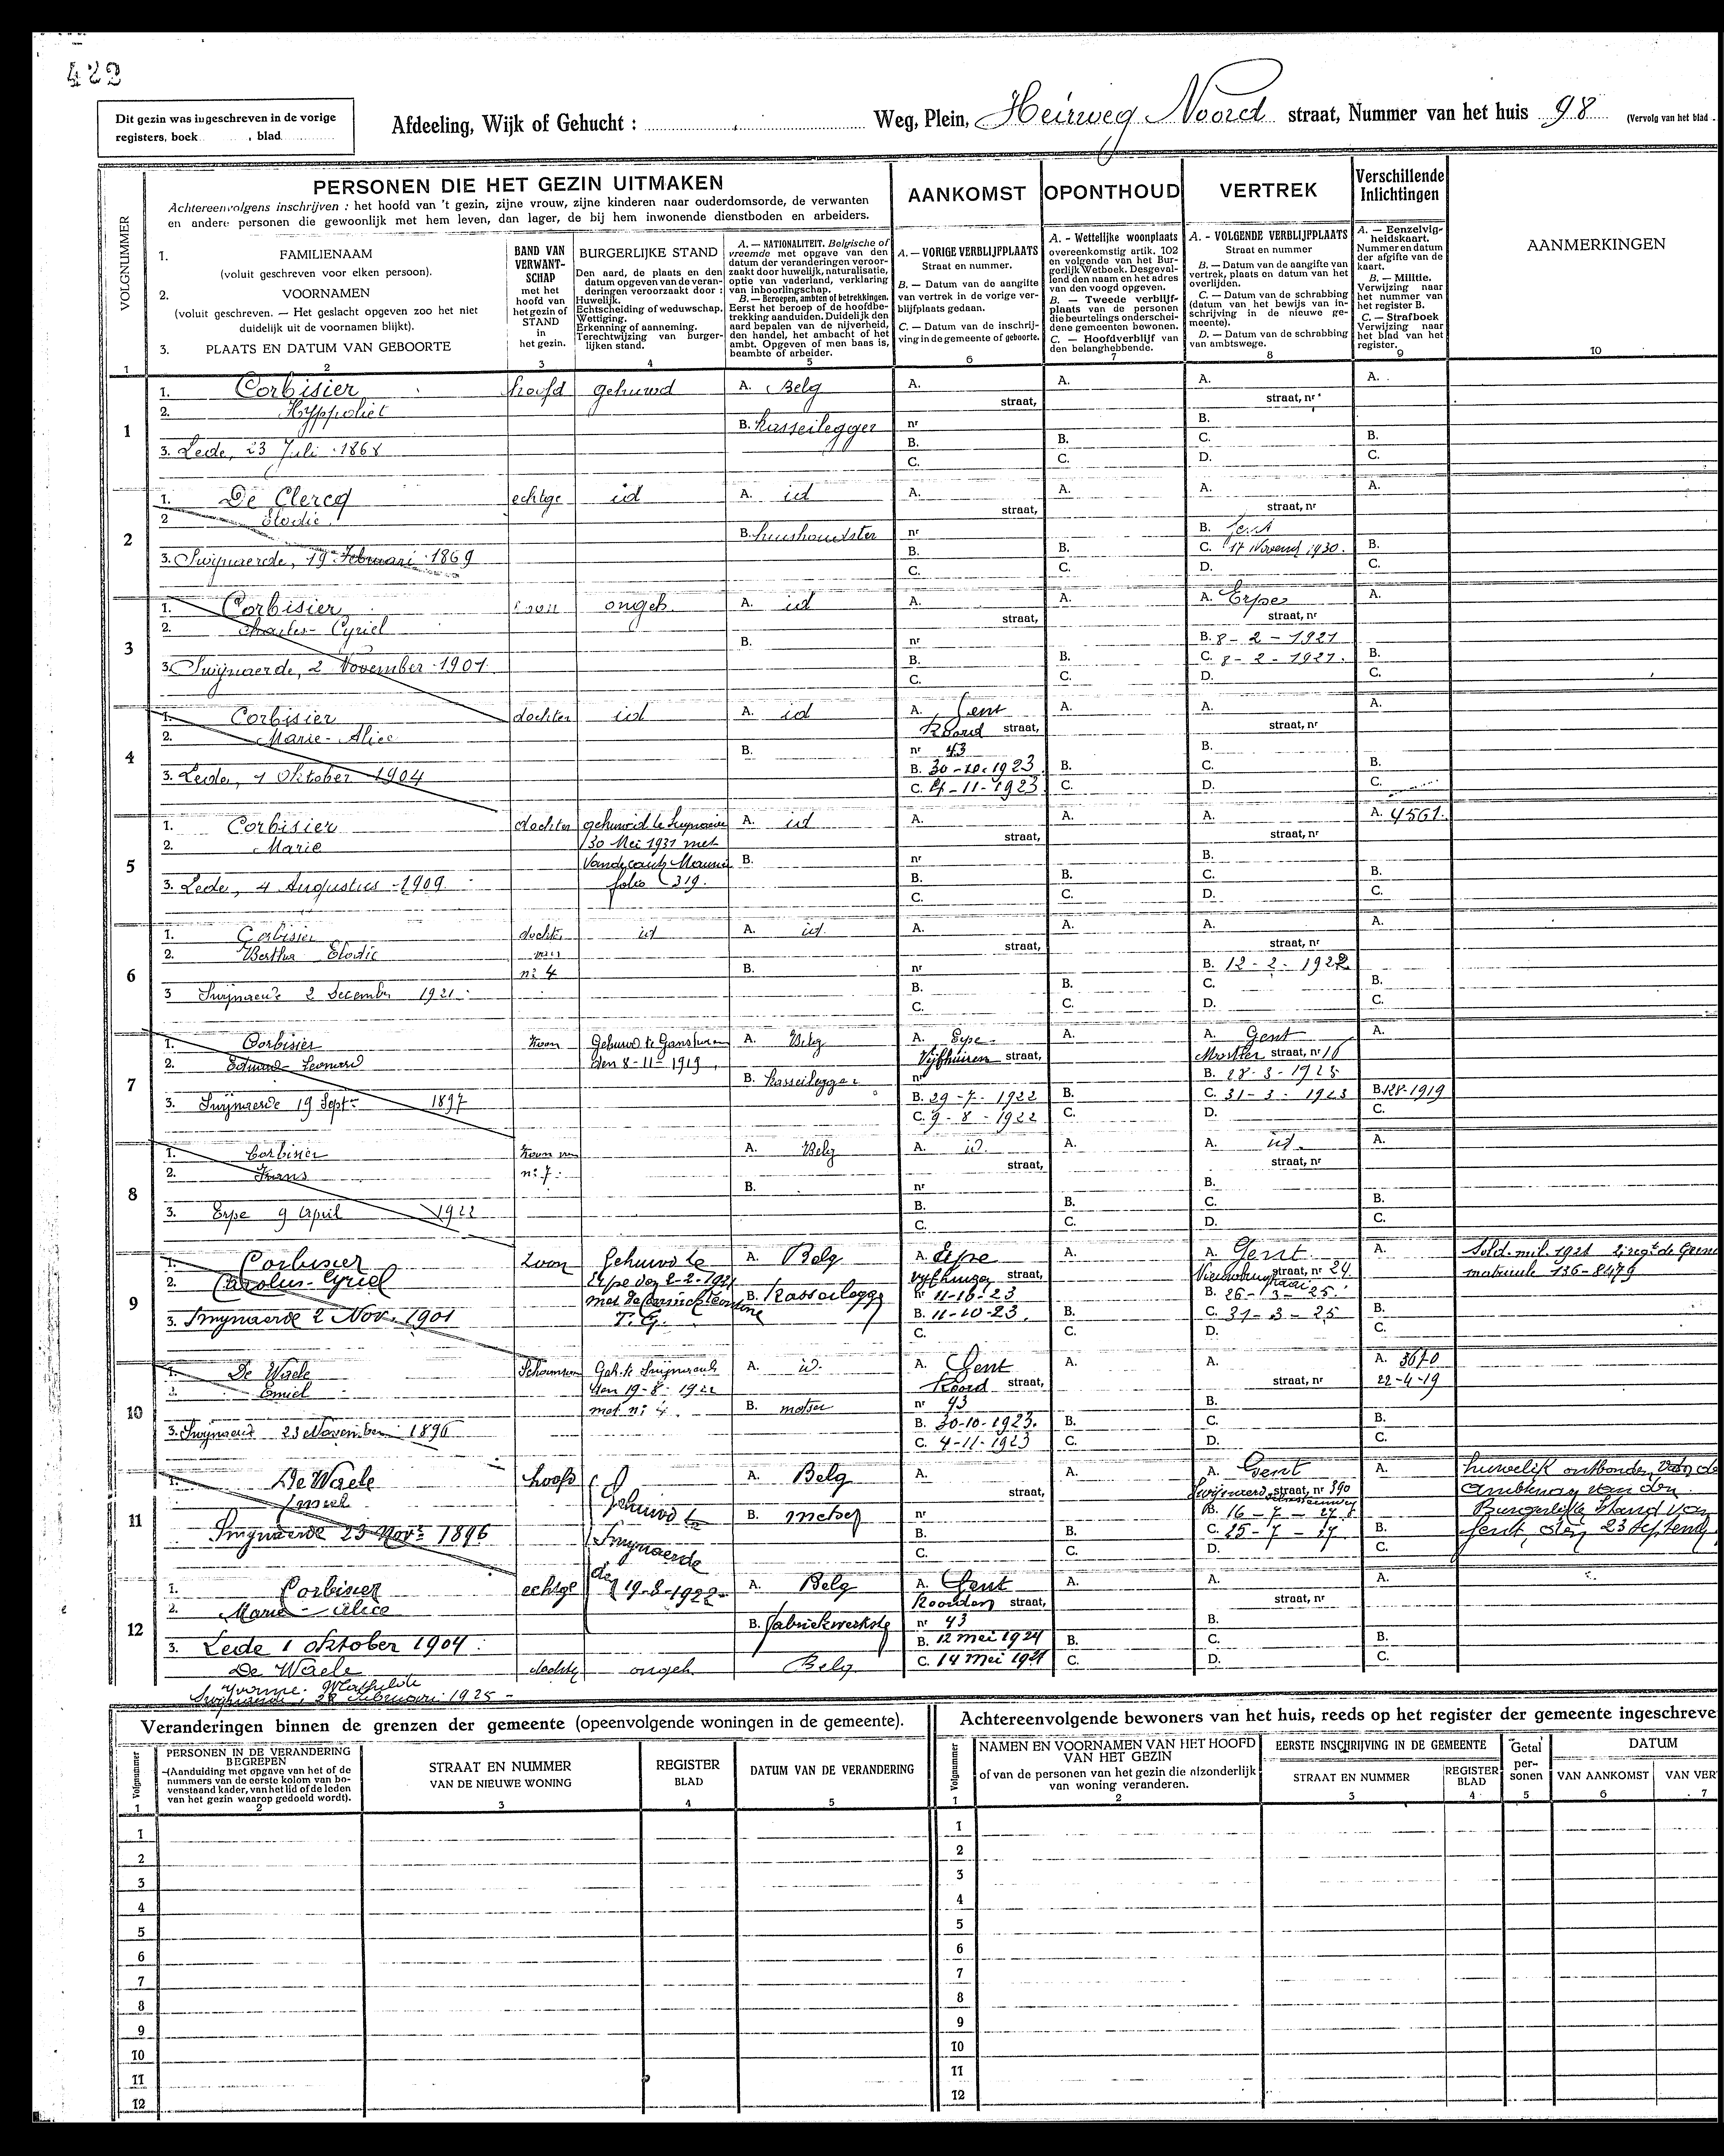 422
Dit gezin was ingeschreven in de vorige
registers, boek , blad
Afdeeling, Wijk of Gehucht : Weg, Plein, Heirweg Noord straat, Nummer van het huis 98 (Vervolg van het blad
VOLGNUMMER
PERSONEN DIE HET GEZIN UITMAKEN
Achtereenvolgens inschrijven : het hoofd van 't gezin, zijne vrouw, zijne kinderen naar ouderdomsorde, de verwanten
en andere personen die gewoonlijk met hem leven, dan lager, de bij hem inwonende dienstboden en arbeiders.
1. FAMILIENAAM
(voluit geschreven voor elken persoon).
2. VOORNAMEN
(voluit geschreven. — Het geslacht opgeven zoo het niet
duidelijk uit de voornamen blijkt).
3. PLAATS EN DATUM VAN GEBOORTE
BAND VAN
VERWANT-
SCHAP
met het
hoofd van
het gezin of
STAND
in
het gezin.
BURGERLIJKE STAND
Den aard, de plaats en den
datum opgeven van de veran-
deringen veroorzaakt door :
Huwelijk.
Echtscheiding of weduwschap.
Wettiging.
Erkenning of aanneming.
Terechtwijzing van burger-
lijken stand.
A. — NATIONALITEIT. Belgische of
vreemde met opgave van den
datum der veranderingen veroor-
zaakt door huwelijk, naturalisatie,
optie van vaderland, verklaring
van inboorlingschap.
B. — Beroepen, ambten of betrekkingen.
Eerst het beroep of de hoofdbe-
trekking aanduiden. Duidelijk den
aard bepalen van de nijverheid,
den handel, het ambacht of het
ambt. Opgeven of men baas is,
beambte of arbeider.
AANKOMST
A. — VORIGE VERBLIJFPLAATS
Straat en nummer.
B. — Datum van de aangifte
van vertrek in de vorige ver-
blijfplaats gedaan.
C. — Datum van de inschrij-
ving in de gemeente of geboorte.
OPONTHOUD
A. - Wettelijke woonplaats
overeenkomstig artik. 102
en volgende van het Bur-
gerlijk Wetboek. Desgeval-
lend den naam en het adres
van den voogd opgeven.
B. — Tweede verblijf-
plaats van de personen
die beurtelings onderschei-
dene gemeenten bewonen.
C. — Hoofdverblijf van
den belanghebbende.
VERTREK
A. - VOLGENDE VERBLIJFPLAATS
Straat en nummer
B. — Datum van de aangifte van
vertrek, plaats en datum van het
overlijden.
C. — Datum van de schrabbing
(datum van het bewijs van in-
schrijving in de nieuwe ge-
meente).
D. — Datum van de schrabbing
van ambtswege.
Verschillende
Inlichtingen
A. — Eenzelvig-
heidskaart.
Nummer en datum
der afgifte van de
kaart.
B. — Militie.
Verwijzing naar
het nummer van
het register B.
C. — Strafboek
Verwijzing naar
het blad van het
register.
AANMERKINGEN
1 2 3 4 5 6 7 8 9 10
1
1. Corbisier hoofd gehuwd A. Belg A. straat, A. A. straat, nr A.
2. Hyppoliet B. kasseilegger nr B.
3. Lede, 23 Juli 1868 B. C. B. C. C. D. B. C.
2
1. De Clercq echtge id A. id A. straat, A. A. straat, nr A.
2 Elodie B. huishoudster nr B.
3. Swijnaerde, 19 Februari 1869 B. C. B. C. C. 17 Novemb 1930. D. B. C.
3
1. Corbisier zoon ongeh. A. id A. straat, A. A. Erpe straat, nr A.
2. Charles-Cyriel B. nr B. 8-2-1921
3. Swijnaerde, 2 November 1901 B. C. B. C. C. 8-2-1921. D. B. C.
4
1. Corbisier dochter id A. id A. Gent A. A. A.
2. Marie-Alice Noord straat, straat, nr
B. nr 43 B.
3. Lede, 1 Oktober 1904 B. 30-10-1923 B. C. B.
C. 4-11-1923 C. D. C.
5
1. Corbisier dochter gehuwd te A. id A. straat, A. A. straat, nr A. 4561.
2. Marie 30 Mei 1931 met
B. nr B.
3. Lede, 4 Augustus 1909 folio 319. B. C. B. C. C. D. B. C.
6
1. Corbisier dochter id A. id. A. straat, A. A. straat, nr A.
2. Bertha Elodie van
nr 4 B. nr B. 12-2-1922
3 Swijnaerde 2 December 1921 B. C. B. C. C. D. B. C.
7
1. Corbisier zoon Gehuwd te A. Belg A. Erpe A. A. Gent A.
2. Eduard-Leonard den 8-11-1919, Vijfhuizen straat, straat, nr 16
B. kasseilegger nr B. 28-3-1923
3. Swijnaerde 19 Sept 1897 B. 29-7-1922 B. C. 31-3-1923 B.
C. 9-8-1922 C. D. C.
8
1. Corbisier zoon van A. Belg A. id. straat, A. A. id. straat, nr A.
2. Frans nr 7. B. nr B.
3. Erpe 9 April 1922 B. C. B. C. C. D. B. C.
9
1. Corbisier zoon Gehuwd te A. Belg A. Erpe A. A. Gent A. Sold. mil. 1921
2. Carolus-Cyriel Erpe den 2-2-1921 Vijfhuizen straat, straat, nr 24 matricule 136-8479
met B. Kasseilegger nr 11-10-23 B. 26-3-25
3. Swijnaerde 2 Nov. 1901 B. 11-10-23. B. C. 31-3-25 B.
C. C. D. C.
10
1. De Waele Schoonzoon Geh. te Swijnaerde A. id. A. Gent A. A. A. 3670
2. Emiel den 19-8-1922 Noord straat, straat, nr 22-4-19
met nr 4. B. metser nr 43 B.
3. Swijnaerde 23 November 1896 B. 30-10-1923. B. C. B.
C. 4-11-1923 C. D. C.
11
1. De Waele hoofd Gehuwd te A. Belg A. straat, A. A. Gent A. huwelijk ontbonden
2. Emiel straat, nr 390 ambtenaar van den
B. metser nr B. 16-7-27 Burgerlijke Stand van
3. Swijnaerde 23 Nov. 1896 Swijnaerde B. C. B. C. C. 25-7-27 D. B. C. Gent, den 23
12
1. Corbisier echtge den 19-8-1922 A. Belg A. Gent A. A. A.
2. Marie-Alice straat, straat, nr
B. fabriekwerkster nr 43 B.
3. Lede 1 Oktober 1904 B. 12 mei 1924 B. C. B.
C. 14 mei 1924 C. D. C.
De Waele dochter ongeh. Belg
Yvonne Mathilde
Swijnaerde, 28 Februari 1925
Veranderingen binnen de grenzen der gemeente (opeenvolgende woningen in de gemeente).
Volgnummer
PERSONEN IN DE VERANDERING
BEGREPEN
(Aanduiding met opgave van het of de
nummers van de eerste kolom van bo-
venstaand kader, van het lid of de leden
van het gezin waarop gedoeld wordt).
STRAAT EN NUMMER
VAN DE NIEUWE WONING
REGISTER
BLAD
DATUM VAN DE VERANDERING
1 2 3 4 5
1
2
3
4
5
6
7
8
9
10
11
12
Achtereenvolgende bewoners van het huis, reeds op het register der gemeente ingeschreve
Volgnummer
NAMEN EN VOORNAMEN VAN HET HOOFD
VAN HET GEZIN
of van de personen van het gezin die afzonderlijk
van woning veranderen.
EERSTE INSCHRIJVING IN DE GEMEENTE
STRAAT EN NUMMER
REGISTER
BLAD
Getal
per-
sonen
DATUM
VAN AANKOMST
VAN VER
1 2 3 4 5 6 7
1
2
3
4
5
6
7
8
9
10
11
12